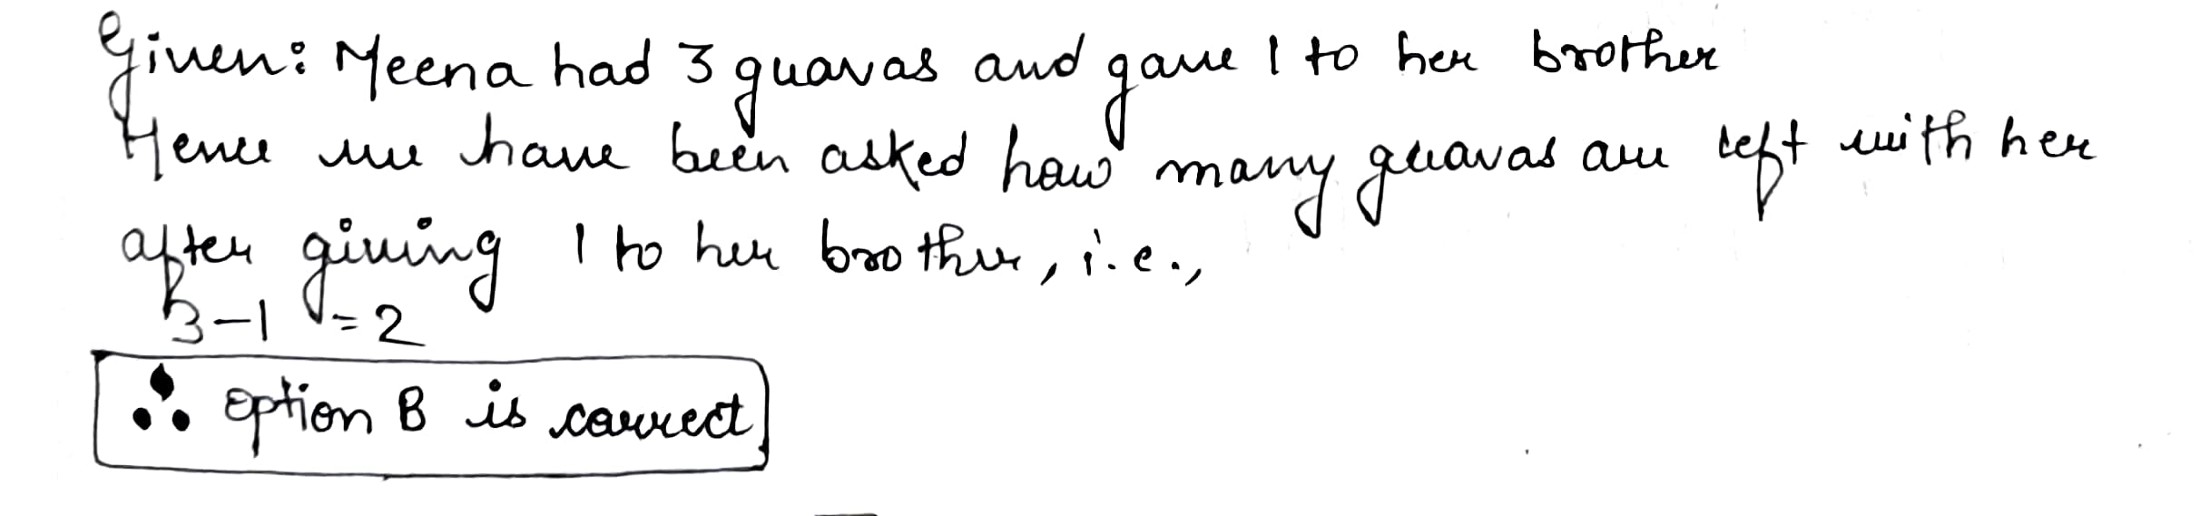 Given: Meena had 3 guavas and gave 1 to her brother
Hence we have been asked how many guavas are left with her
after giving 1 to her brother, i.e.,
3-1 = 2
∴ option B is correct